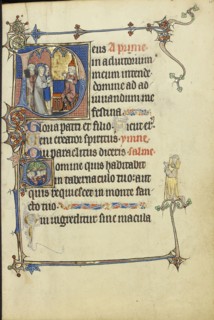 eus A prime
in adiutorium
meum intende
domine ad ad
iuuandum me
festina
Gloria patri et filio Sicut er
Veni creator spiritus ympne
Qui paraclitus diceris salme
Domine quis habitabit
in tabernaculo tuo aut
quis requiescet in monte san
cto tuo
Qui ingreditur sine macula